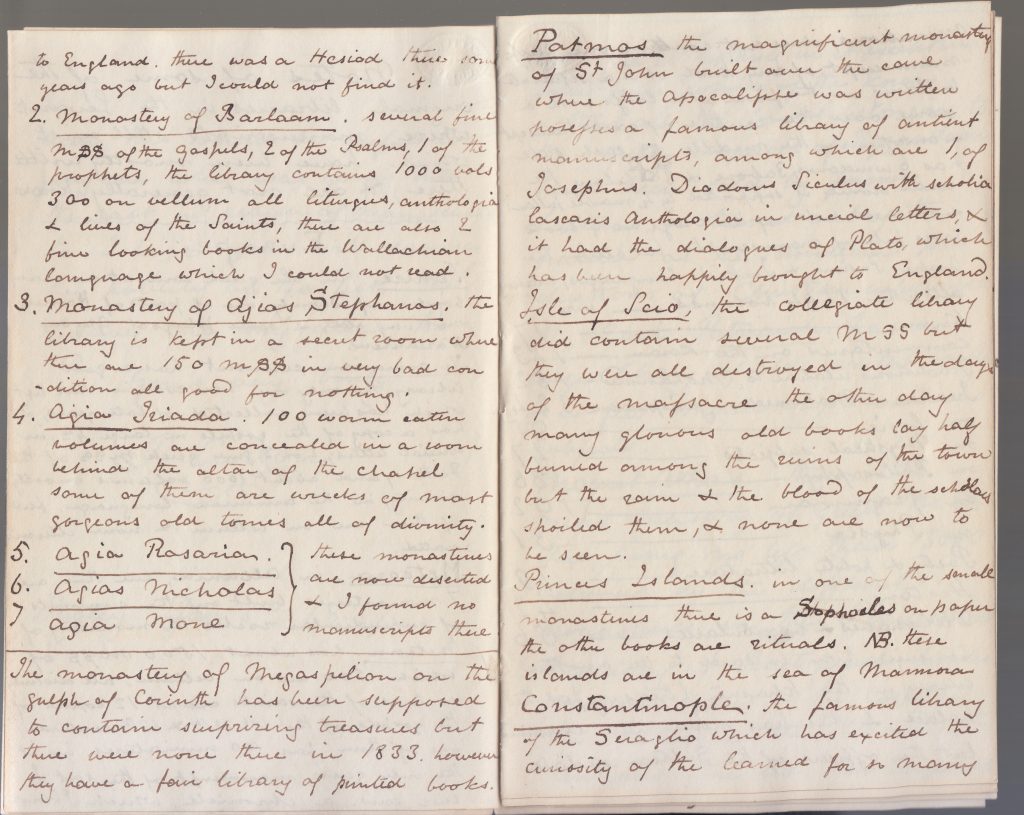 to England. there was a Hesiod there some
years ago but I could not find it.
2. Monastery of Barlaam. several fine
MSS of the Gospels, 2 of the Psalms, 1 of the
prophets, the library contains 1000 vols
300 on vellum all liturgies, anthologia
& lives of the Saints, there are also 2
fine looking books in the Wallachian
language which I could not read.
3. Monastery of Agios Stephanos. the
library is kept in a secret room where
there are 150 MSS in very bad con
-dition all good for nothing.
4. Agia Triada. 100 worm eaten
volumes are concealed in a room
behind the altar of the chapel
some of them are wrecks of most
gorgeous old tomes all of divinity.
5. Agia Rosaria.
6. Agios Nicholas
7 Agia Mone
these monasteries
are now deserted
& I found no
manuscripts there
The monastery of Megaspelion on the
gulph of Corinth has been supposed
to contain surprizing treasures but
there were none there in 1833. however
they have a fair library of printed books.
Patmos the magnificent monastery
of St John built over the cave
where the Apocalipse was written
possesses a famous library of antient
manuscripts, among which are 1, of
Josephus. Diodorus Siculus with scholia
lascaris Anthologia in uncial letters, &
it had the dialogues of Plato, which
has been happily brought to England.
Isle of Scio, the collegiate library
did contain several MSS but
they were all destroyed in the days
of the massacre the other day
many glorious old books lay half
burned among the ruins of the town
but the rain & the blood of the scholars
spoiled them, & none are now to
be seen.
Princes Islands. in one of the small
monasteries there is a Sophocles on paper
the other books are rituals. NB. these
islands are in the sea of Marmora
Constantinople. the famous library
of the Seraglio which has excited the
curiosity of the learned for so many